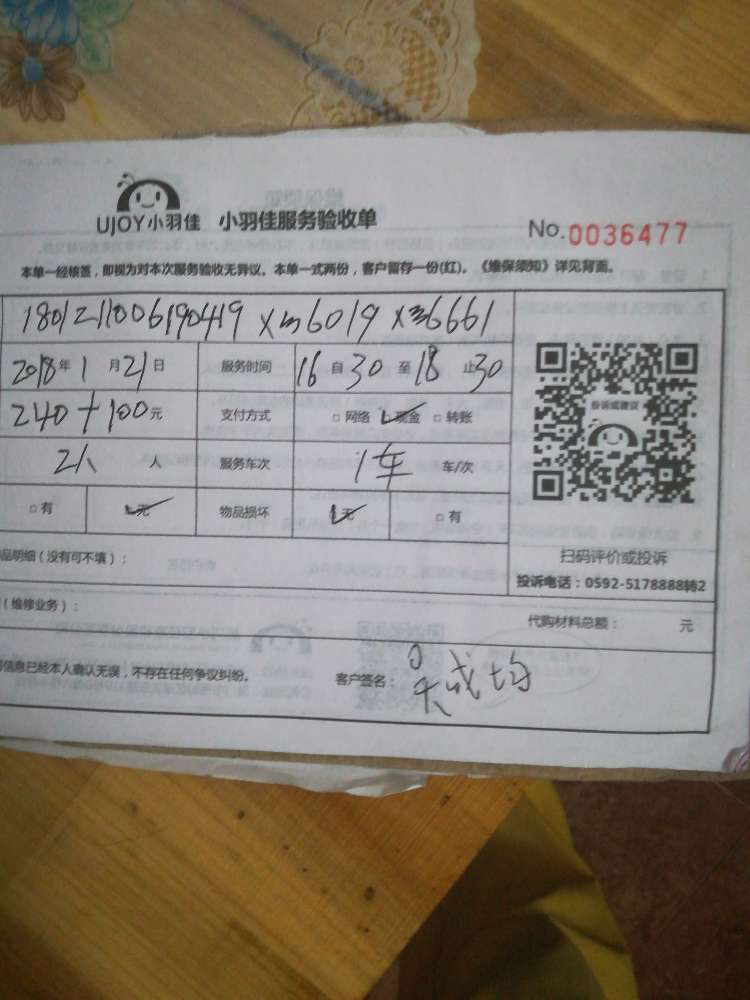 UJOY小羽佳 小羽佳服务验收单
No.0036477
本单一经核签，即视为对本次服务验收无异议。本单一式两份，客户留存一份(红)。《维保须知》详见背面。
1801211006190419 xm6019 xm6661
2018年1月21日 服务时间 16自30至18止30
240+100元 支付方式 □网络 现金 □转账
投诉或建议
2人 人 服务车次 1车 车/次
□有 无 物品损坏 无 □有
扫码评价或投诉
品明细（没有可不填）：
投诉电话：0592-5178888转2
（维修业务）：
代购材料总额： 元
信息已经本人确认无误，不存在任何争议纠纷。
客户签名：吴成均